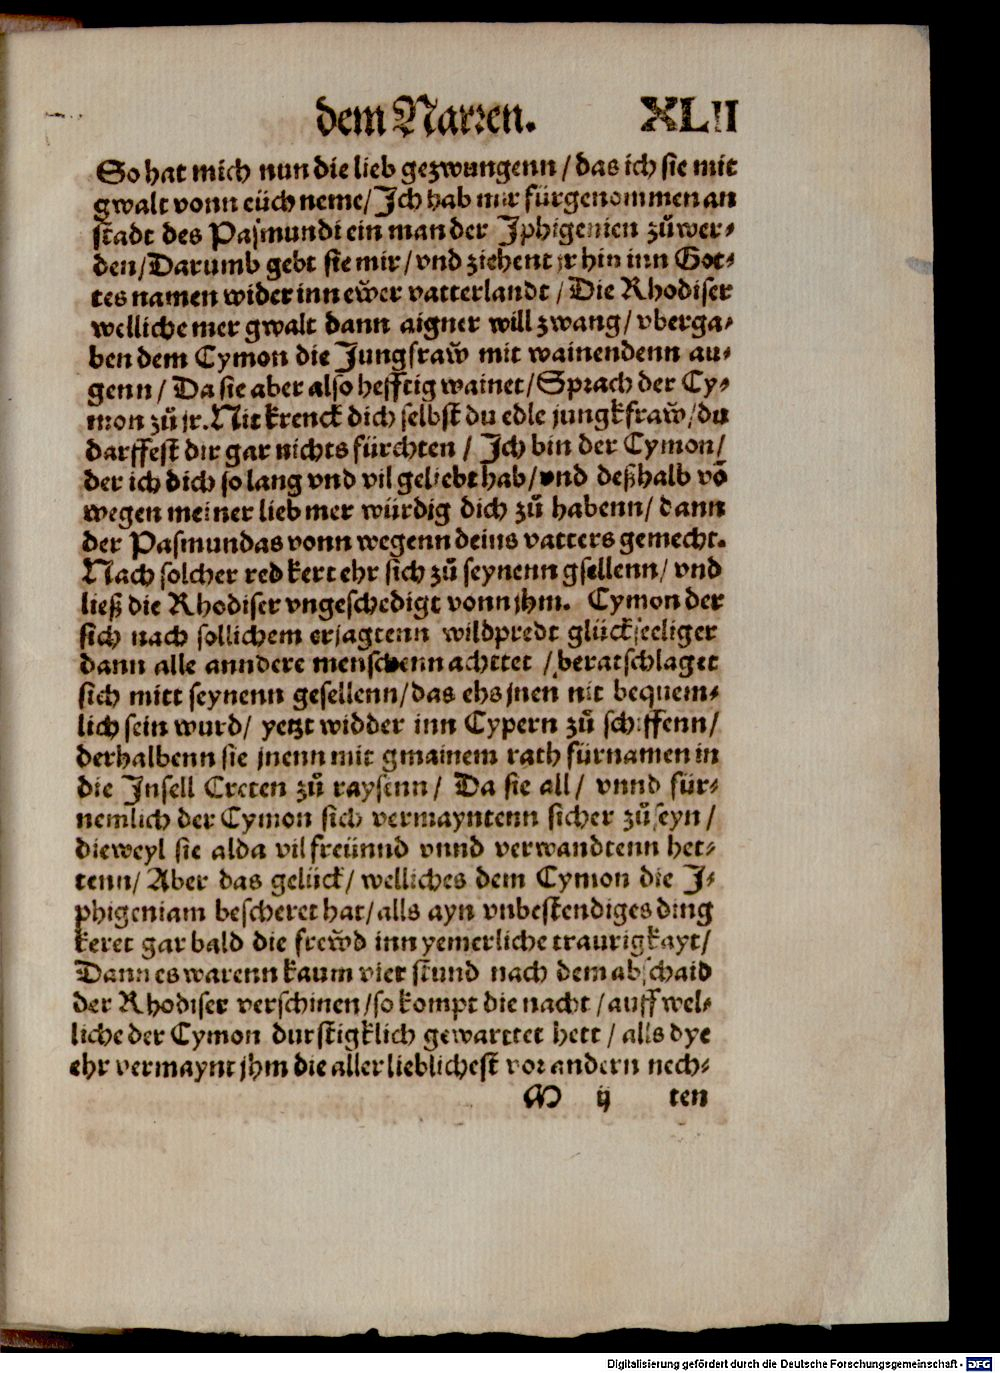 dem Narren. XLII
So hat mich nun die lieb gezwungenn / das ich sie mit
gwalt vonn eüch neme / Ich hab mir fürgenommen an
stadt des Pasmundi ein man der Iphigenien zůwer⸗
den / Darumb gebt sie mir / vnd ziehent jr hin inn Got⸗
tes namen wider inn ewer vatterlandt / Die Rhodiser
welliche mer gwalt dann aigner will zwang / vberga⸗
ben dem Cymon die Jungfraw mit wainendenn au⸗
genn / Da sie aber also hefftig wainet / Sprach der Cy⸗
mon zů jr. Nit krenck dich selbst du edle jungkfraw / du
darffest dir gar nichts fürchten / Ich bin der Cymon /
der ich dich so lang vnd vil geliebt hab / vnd deßhalb võ
wegen meiner lieb mer würdig dich zů habenn / dann
der Pasmundas vonn wegenn deins vatters gemecht.
Nach solcher red kert ehr sich zů seynenn gsellenn / vnd
ließ die Rhodiser vngeschedigt vonn jhm. Cymon der
sich nach sollichem erjagtenn wildpredt glückseeliger
dann alle anndere menschenn achttet / beratschlaget
sich mitt seynenn gesellenn / das ehs jnen nit bequem⸗
lich sein wurd / yetzt widder inn Cypern zů schiffenn /
derhalbenn sie jnenn mit gmainem rath fürnamen in
die Insell Creten zů raysenn / Da sie all / vnnd für⸗
nemlich der Cymon sich vermayntenn sicher zů seyn /
dieweyl sie alda vil freünnd vnnd verwandtenn het⸗
tenn / Aber das gelück / welliches dem Cymon die I⸗
phigeniam bescheret hat / alls ayn vnbestendiges ding
keret gar bald die frewd inn yemerliche traurigkayt /
Dann es warenn kaum vier stund nach dem abschaid
der Rhodiser verschinen / so kompt die nacht / auff wel⸗
liche der Cymon durstigklich gewarttet hett / alls dye
ehr vermaynt jhm die aller lieblichest vor andern nech⸗
M ij ten
Digitalisierung gefördert durch die Deutsche Forschungsgemeinschaft - DFG